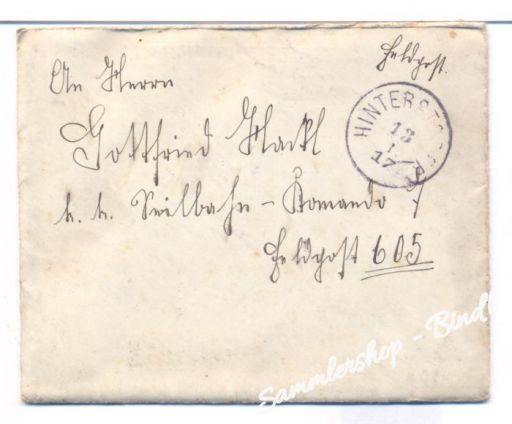 Feldpost.
An Herrn
Gottfried Hackl
k. k. Seilbahn - Komando
Feldpost 605
13
17
Sammlershop -